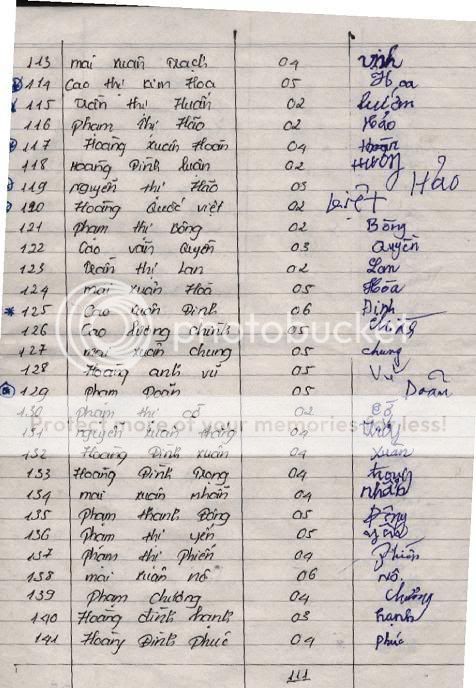 113 mai xuân Trạch 04 Vinh
114 Cao thị kim Hoa 05 Hoa
115 Trần thị Huấn 02
116 Phạm thị Hảo 02 Hảo
117 Hoàng xuân Hoàn 04 Hoàn
118 Hoàng Đình Luân 02
119 nguyễn thị Hảo 03 Hảo
120 Hoàng Quốc việt 02 Việt
121 Phạm thị Bông 02 Bông
122 Cao văn Quyền 03 Quyền
123 Trần thị Lan 02 Lan
124 mai xuân Hoà 05 Hòa
125 Cao xuân Định 06 Định
126 Cao Lương chính 05
127 mai xuân chung 05 chung
128 Hoàng anh vũ 05 Vũ
129 Phạm Doãn 05 Doãn
130 phạm thị cố 02 Cố
131 nguyễn xuân thắng 04
132 Hoàng Đình xuân 04 Xuân
133 Hoàng Đình Trọng 04 trọng
134 mai xuân nhân 04 nhân
135 Phạm thanh Đồng 05 Đồng
136 Phạm thị yến 05 yến
137 Phạm thị Phiên 04 Phiên
138 mai xuân nô 06 nô
139 Phạm chương 04 Chương
140 Hoàng đình hạnh 03 hạnh
141 Hoàng Đình phúc 04 phúc
111
photobucket
Protect more of your memories for less!